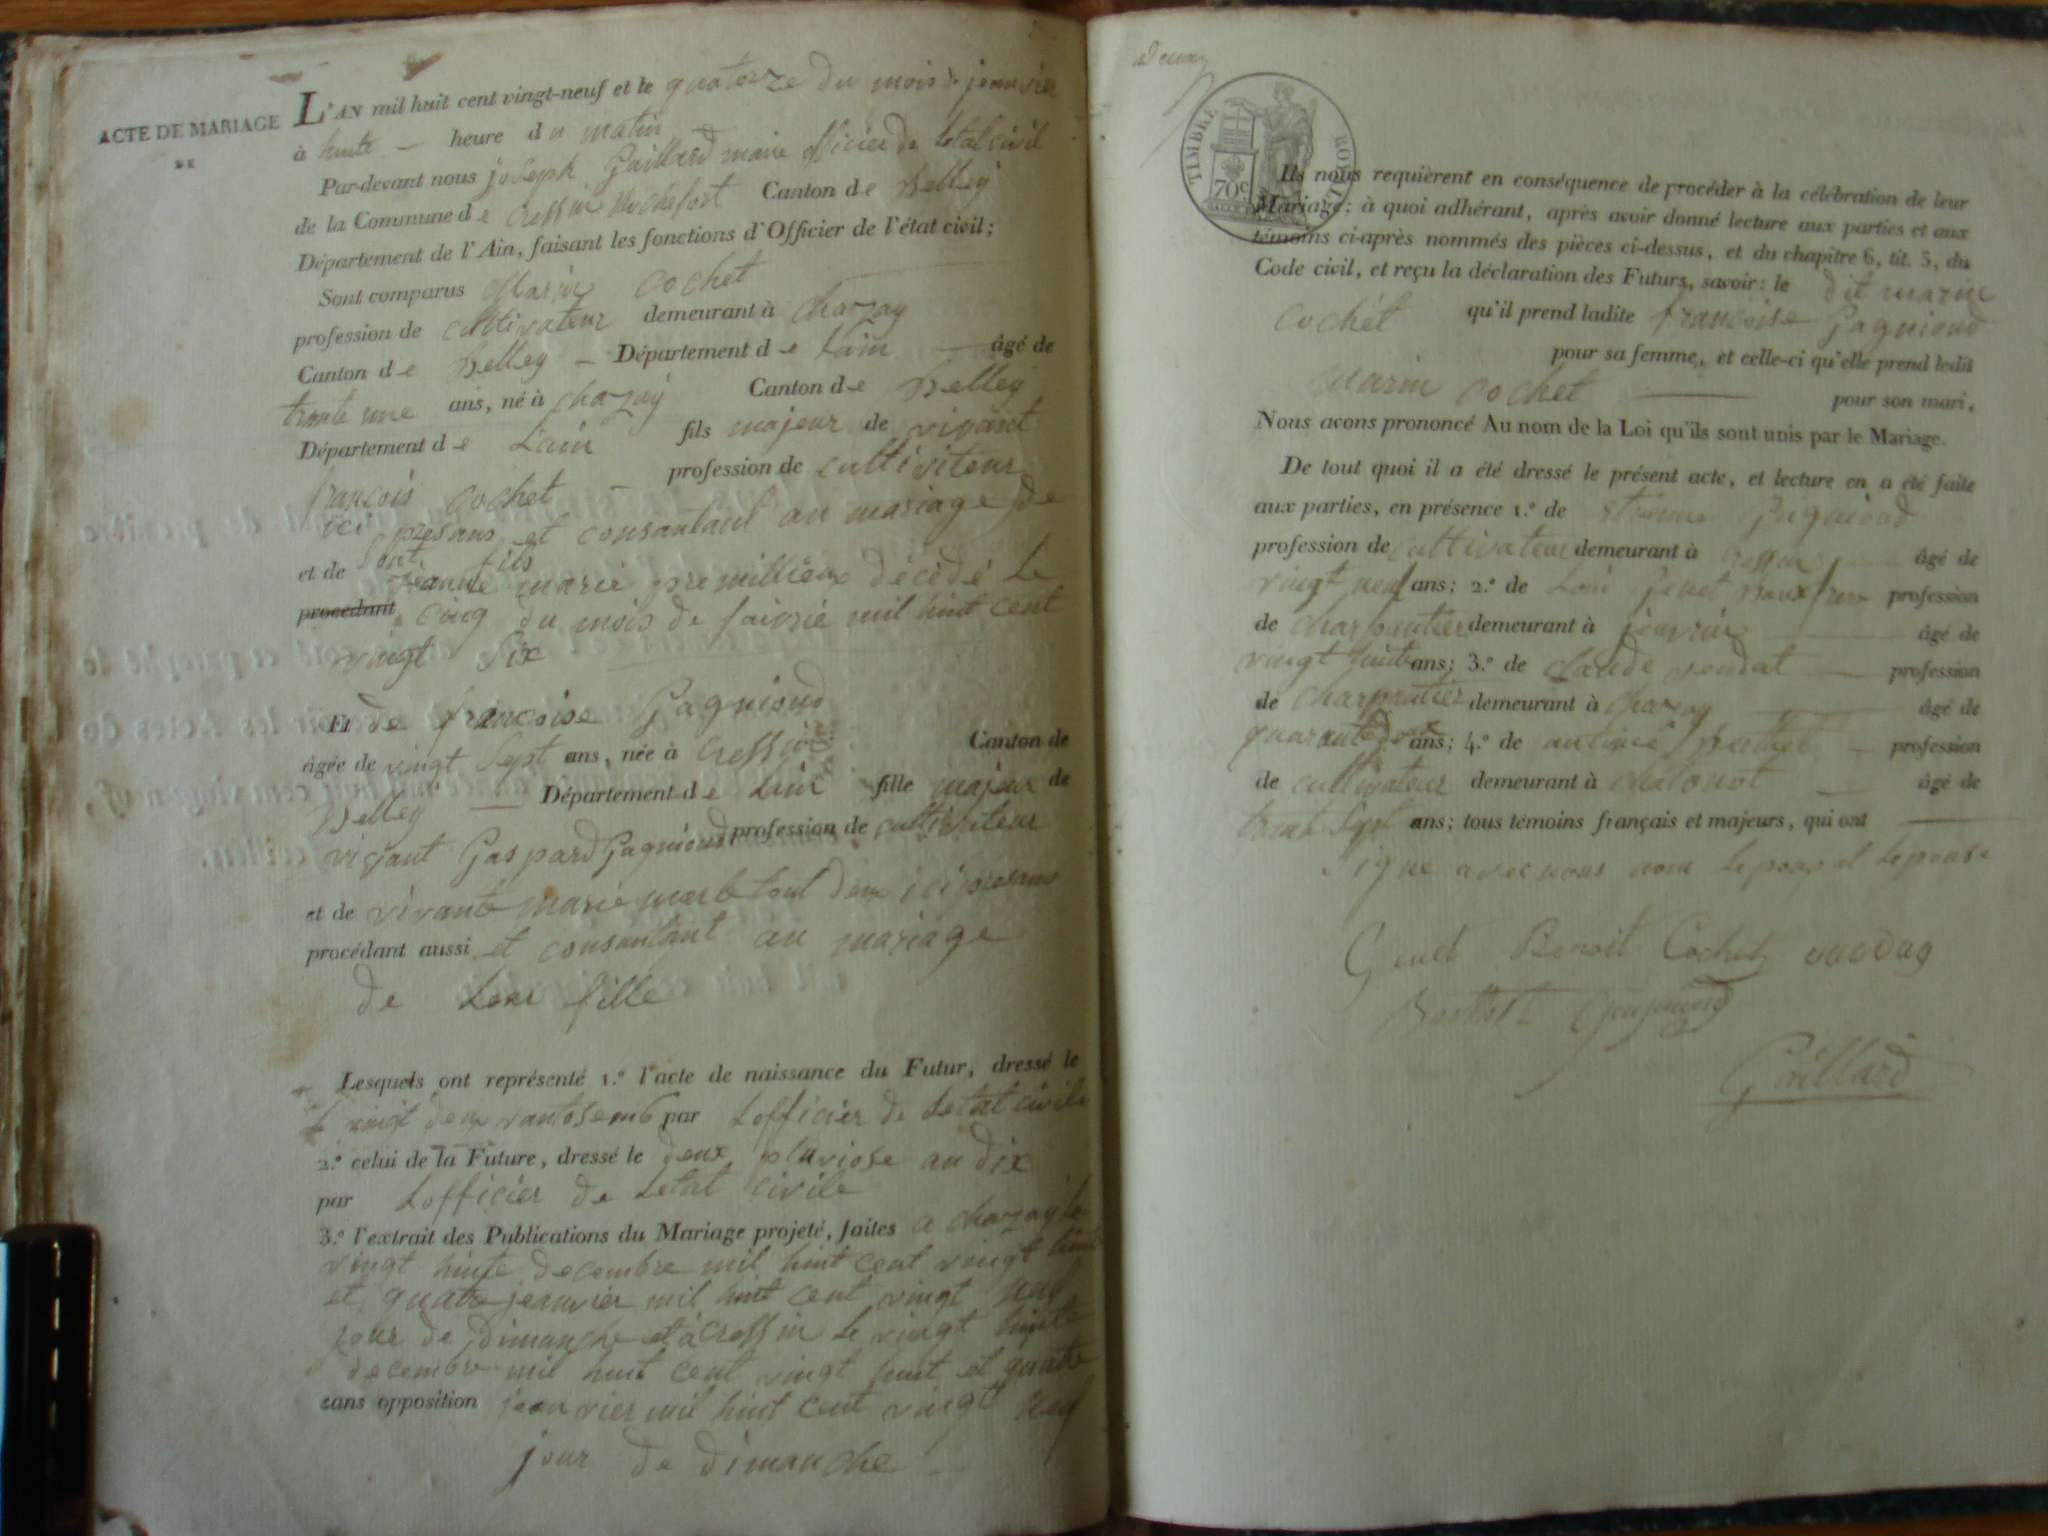 ACTE DE MARIAGE
DE
L'AN mil huit cent vingt-neuf et le quatorze du mois de jeanvier
à huite heure du matin
Par-devant nous joseph Gaillard maire officier de letat civil
de la Commune de Cressin Rochefort Canton de Belley
Département de l'Ain, faisant les fonctions d'Officier de l'état civil;
Sont comparus Marin Cochet
profession de cultivateur demeurant à chazay
Canton de Belley Département de Lain âgé de
trante une ans, né à chazay Canton de Belley
Département de Lain fils majeur de vivant
françois cochet profession de cultiviteur
ici presans et consantant au mariage de
et de Sont fils
jeanne marie premillieux décédé le
procédant cinq du mois de faivrié mil huit cent
vingt Six
Et de françoise Gagnioud
âgée de vingt Sept ans, née à Cressin Canton de
Belley Département de Lain fille majeur de
vivant Gaspard Gagnioud profession de cultiviteur
et de vivante marie tout deux ici presans
procédant aussi et consantant au mariage
de Leur fille
Lesquels ont représenté 1.º l'acte de naissance du Futur, dressé le
le vingt deux vantose an 6 par Lofficier de Letat civile
2.º celui de la Future, dressé le deux pluviose an dix
par Lofficier de Letat civile
3.º l'extrait des Publications du Mariage projeté, faites a chazay le
vingt huite decembre mil huit cent vingt huit
et quatre jeanvier mil huit cent vingt neuf
jour de Dimanche et à Cressin le vingt huite
decembre mil huit cent vingt huit et quatre
sans opposition jeanvier mil huit cent vingt neuf
jour de Dimanche
TIMBRE ROYAL
70c
Ils nous requièrent en conséquence de procéder à la célébration de leur
Mariage: à quoi adhérant, après avoir donné lecture aux parties et aux
témoins ci-après nommés des pièces ci-dessus, et du chapitre 6, tit. 5, du
Code civil, et reçu la déclaration des Futurs, savoir: le dit marin
cochet qu'il prend ladite françoise Gagnioud
pour sa femme, et celle-ci qu'elle prend ledit
Marin cochet pour son mari,
Nous avons prononcé Au nom de la Loi qu'ils sont unis par le Mariage.
De tout quoi il a été dressé le présent acte, et lecture en a été faite
aux parties, en présence 1.º de Gagnioud
profession de cultivateur demeurant à Cressin âgé de
vingt neuf ans; 2.º de profession
de charpantier demeurant à âgé de
vingt huite ans; 3.º de claude vendat profession
de charpantier demeurant à chazay âgé de
quarante deux ans; 4.º de profession
de cultivateur demeurant à chatonot âgé de
trant Sept ans; tous témoins français et majeurs, qui ont
Signe avec nous
Benoit Cochet
Gaillard